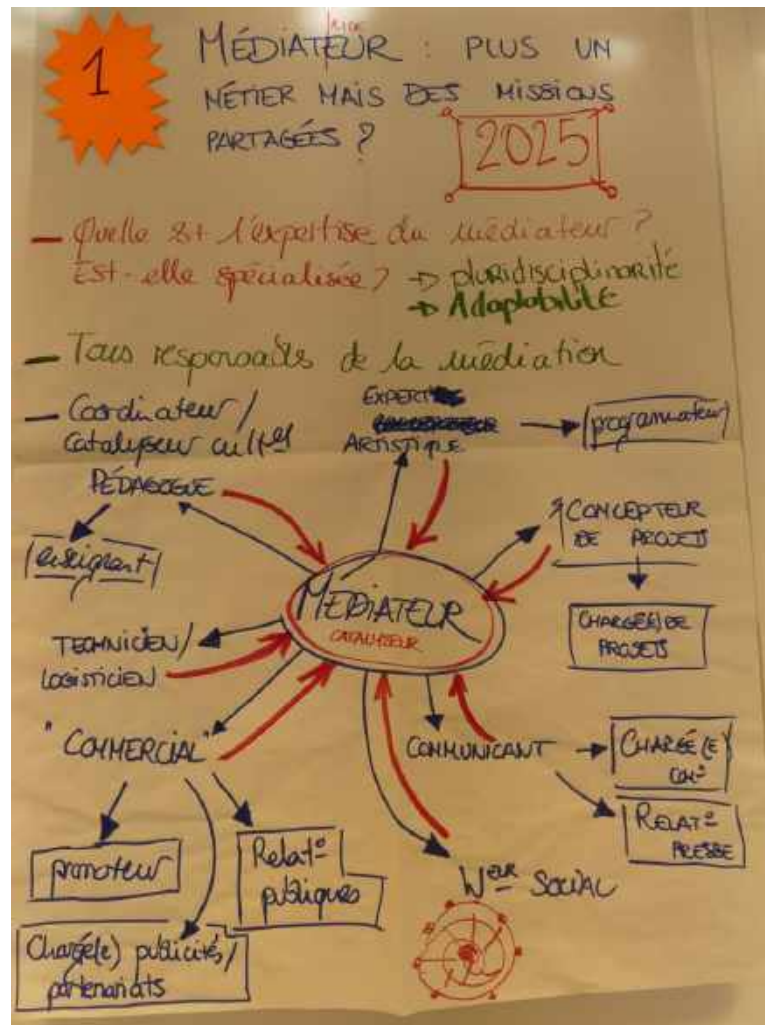 1
RICE
MÉDIATEUR : PLUS UN
MÉTIER MAIS DES MISSIONS
PARTAGÉES ?
2025
- Quelle est l'expertise du médiateur ?
Est-elle spécialisée ? → pluridisciplinarité
→ Adaptabilité
- Tous responsables de la médiation
- Coordinateur /
Catalyseur cultel
EXPERT
ARTISTIQUE
programmateur
PÉDAGOGUE
enseignant
CONCEPTEUR
DE PROJETS
CHARGÉ(E) DE
PROJETS
MÉDIATEUR
CATALYSEUR
TECHNICIEN /
LOGISTICIEN
"COMMERCIAL"
COMMUNICANT
CHARGÉ(E)
COMº
RELATº
PRESSE
promoteur
Relatº
publiques
Chargé(e) publicités /
partenariats
Weur SOCIAL